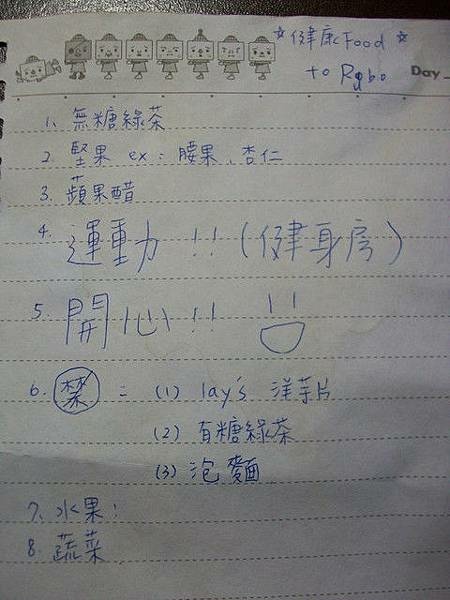 ☆健康Food☆
to Rabo
Day
1. 無糖綠茶
2. 堅果 ex: 腰果、杏仁
3. 蘋果醋
4. 運動 !! (健身房)
5. 開心 !!
6. 禁 = (1) lay's 洋芋片
(2) 有糖綠茶
(3) 泡麵
7. 水果:
8. 蔬菜